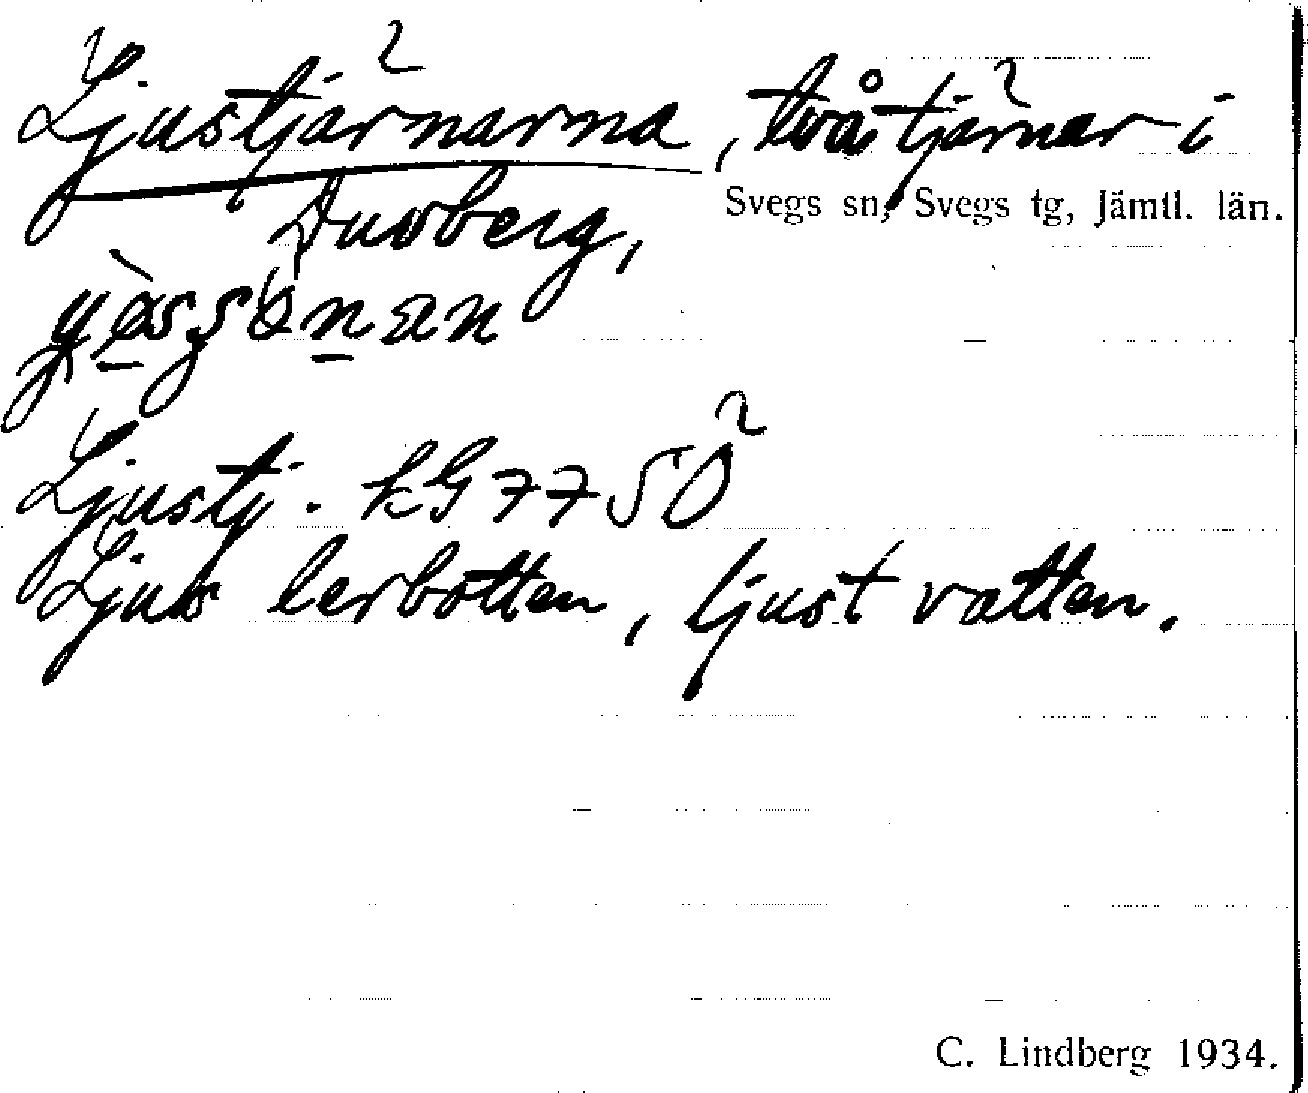 Ljustjärnarna, två tjärnar i
Svegs sn, Svegs tg, Jämtl. län.
Duvberg,
Ljustj. kG 7750
Ljus lerbotten, ljust vatten.
C. Lindberg 1934.